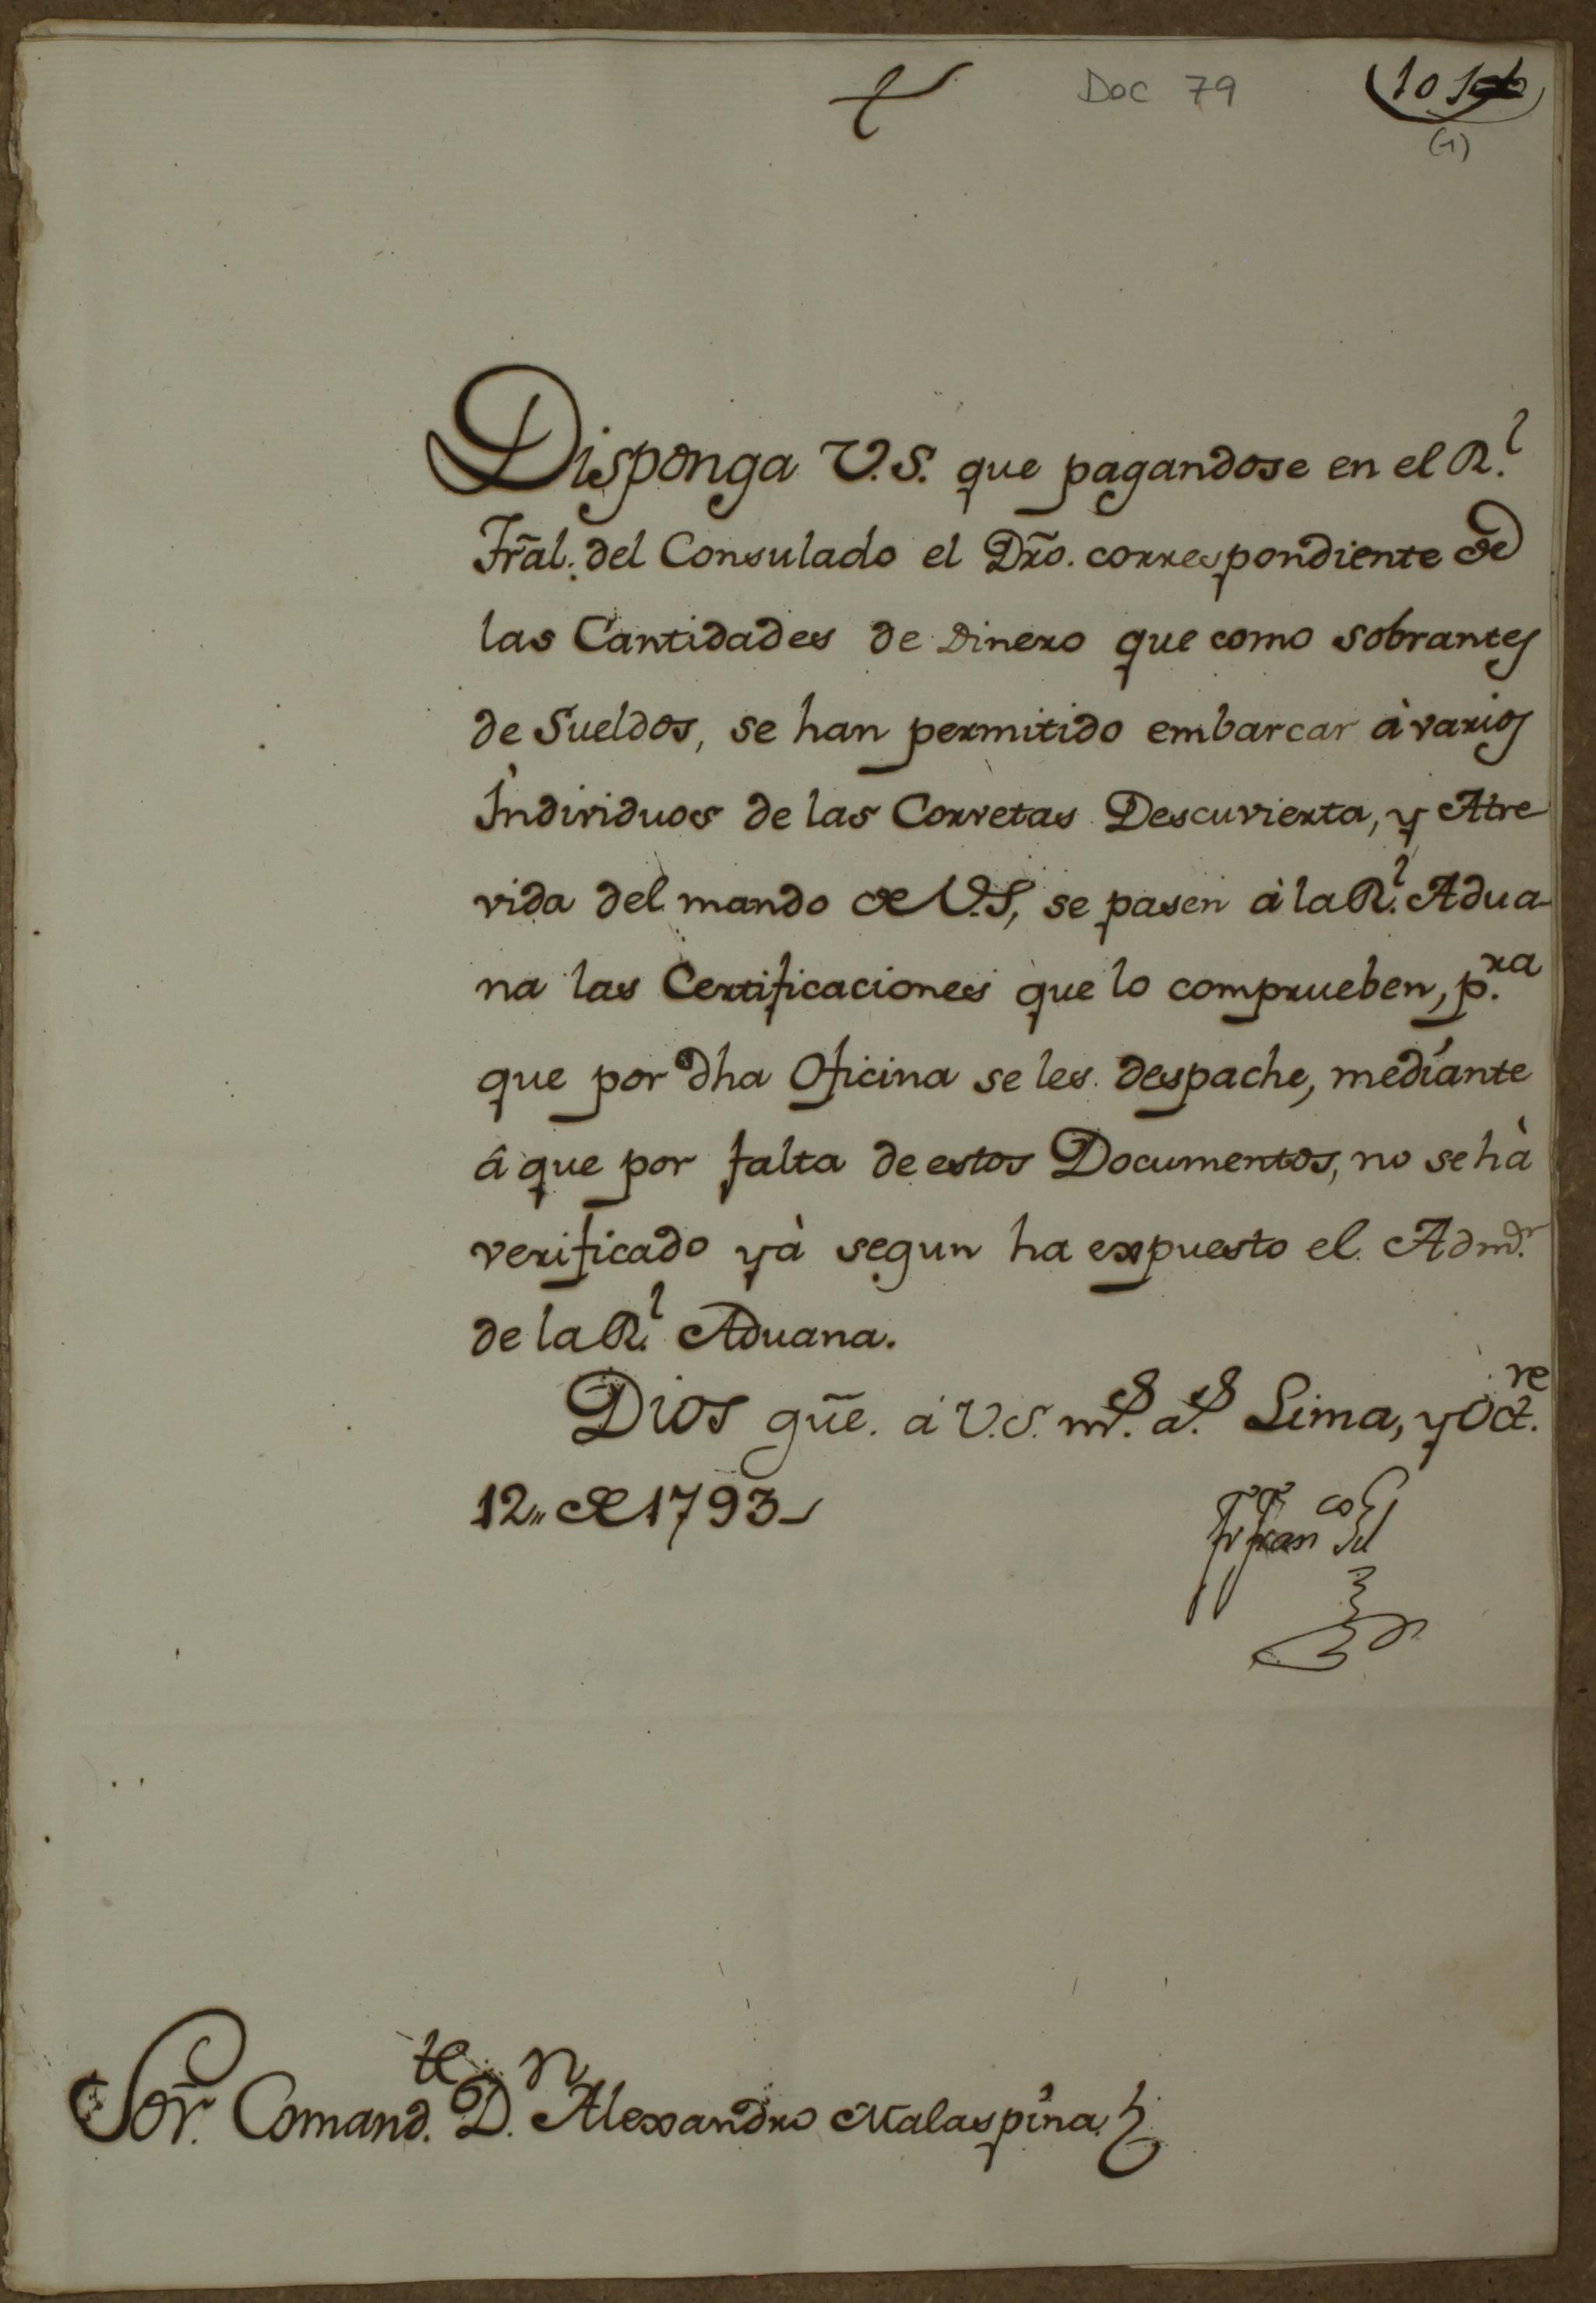 Doc 79
(1)
Disponga V.S. que pagandose en el R.l
Tr̃al. del Consulado el Dr̃o. correspondiente de
las Cantidades de Dinero que como sobrantes
de Sueldos, se han permitido embarcar à varios
Individuos de las Corvetas Descuvierta, y Atre
vida del mando de V.S, se pasen à la R.l Adua-
na las Certificaciones que lo comprueben, p.ra
que por dha Oficina se les despache, mediante
â que por falta de estos Documentos, no se hà
verificado yà segun ha expuesto el Admd.r
de la R.l Aduana.
Dios gũe. à V.S. m.s a.s Lima, y Oct.re
12,, de 1793
Fr Fran.co Gil
Sor̃. Comand.te D.n Alexandro Malaspina